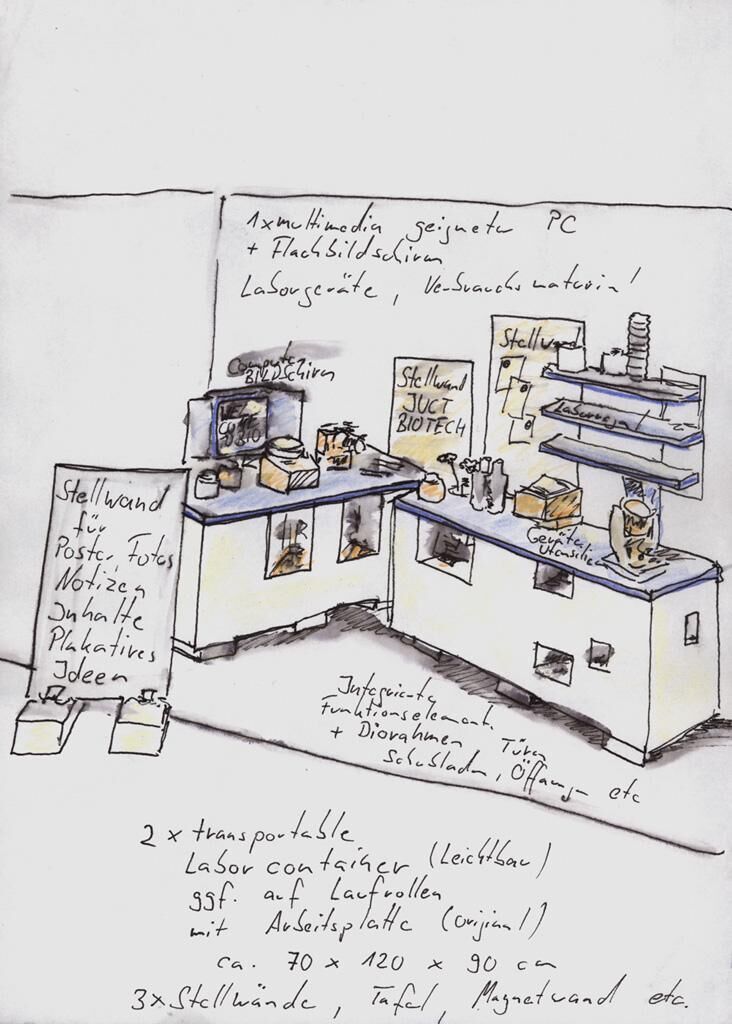 1x multimedia geigneter PC
+ Flachbildschirm
Laborgeräte, Verbrauchsmaterial
Computer
BILDSchirm
Stellwand
JUCT
BIOTECH
Stellwand
Laborregal
Geräte
Utensilien
Stellwand
für
Poster, Fotos
Notizen
Inhalte
Plakatives
Ideen
Integrierte
Funktionselemente
+ Diorahmen Türen
Schubladen, Öffnungen etc
2 x transportable
Laborcontainer (Leichtbau)
ggf. auf Laufrollen
mit Arbeitsplatte (original)
ca. 70 x 120 x 90 cm
3x Stellwände, Tafel, Magnetwand etc.